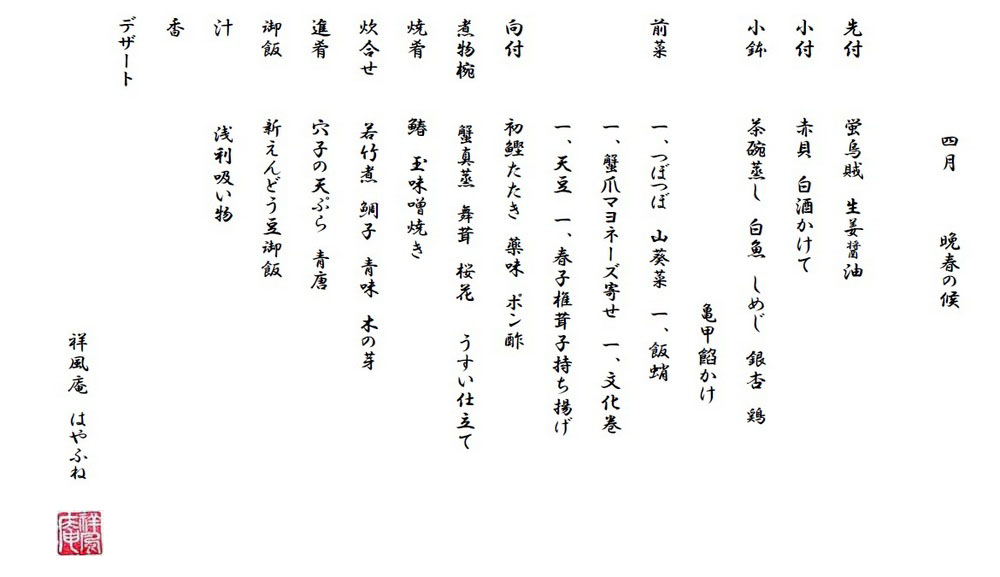 四月　晩春の候
先付　蛍烏賊　生姜醤油
小付　赤貝　白酒かけて
小鉢　茶碗蒸し　白魚　しめじ　銀杏　鶏
亀甲餡かけ
前菜　一、つぼつぼ　山葵菜　一、飯蛸
一、蟹爪マヨネーズ寄せ　一、文化巻
一、天豆　一、春子椎茸子持ち揚げ
向付　初鰹たたき　薬味　ポン酢
煮物椀　蟹真蒸　舞茸　桜花　うすい仕立て
焼肴　鰆　玉味噌焼き
炊合せ　若竹煮　鯛子　青味　木の芽
進肴　穴子の天ぷら　青唐
御飯　新えんどう豆御飯
汁　浅利吸い物
香
デザート
祥風庵　はやふね
祥風庵